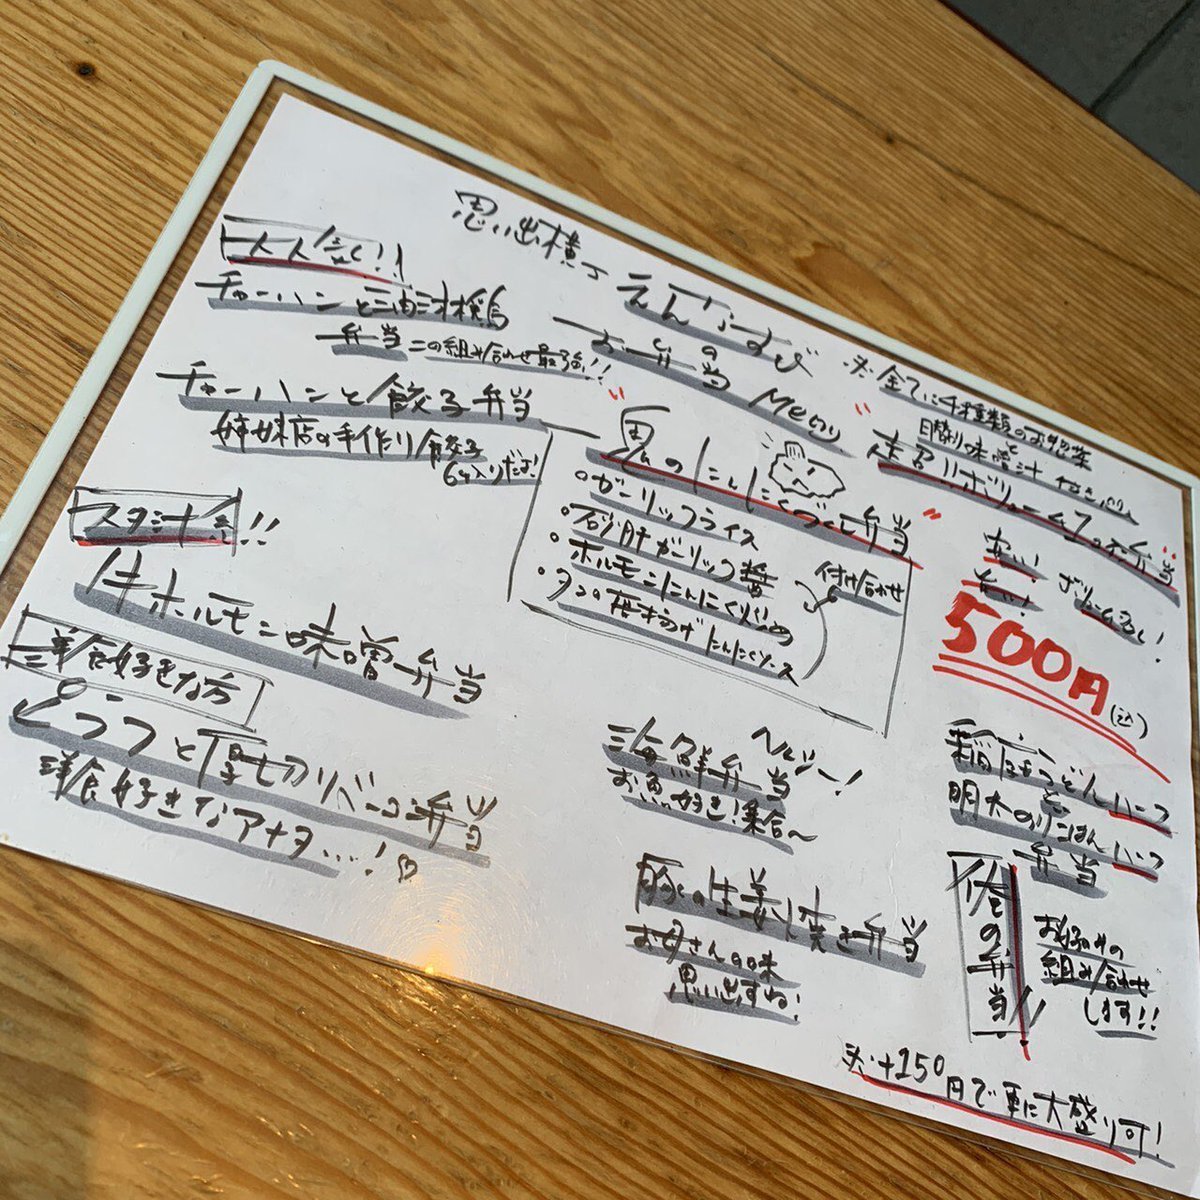 思い出横丁 えんむすび
の
お弁当 Menu
※全てに千種類のお惣菜
と
日替り味噌汁 付き
超ボリューム
お弁当
安い!
ボリューム
500円(込)
一人人気!!
チャーハンと油淋鶏
弁当 この組み合わせ最強!!
チャーハンと餃子弁当
姉妹店の手作り餃子
6ヶ入りだよ!
スタミナ系!!
牛ホルモン味噌弁当
洋食好きな方
とうふと厚切りベーコン弁当
洋食好きなアナタ…!♡
"鬼のにんにくづくし弁当"
・ガーリックライス
・砂肝ガーリック醤
・ホルモンにんにく炒め
・タンの唐揚げにんにくソース
付け合わせ
ヘルシー!
海鮮弁当
お魚好き!集合〜
豚の生姜焼き弁当
お母さんの味
思い出すね!
稲庭うどんハーフ
と
明太のりごはんハーフ
弁当
俺の弁当!!
お好みの
組み合わせ
します!!
※+150円で更に大盛り可!